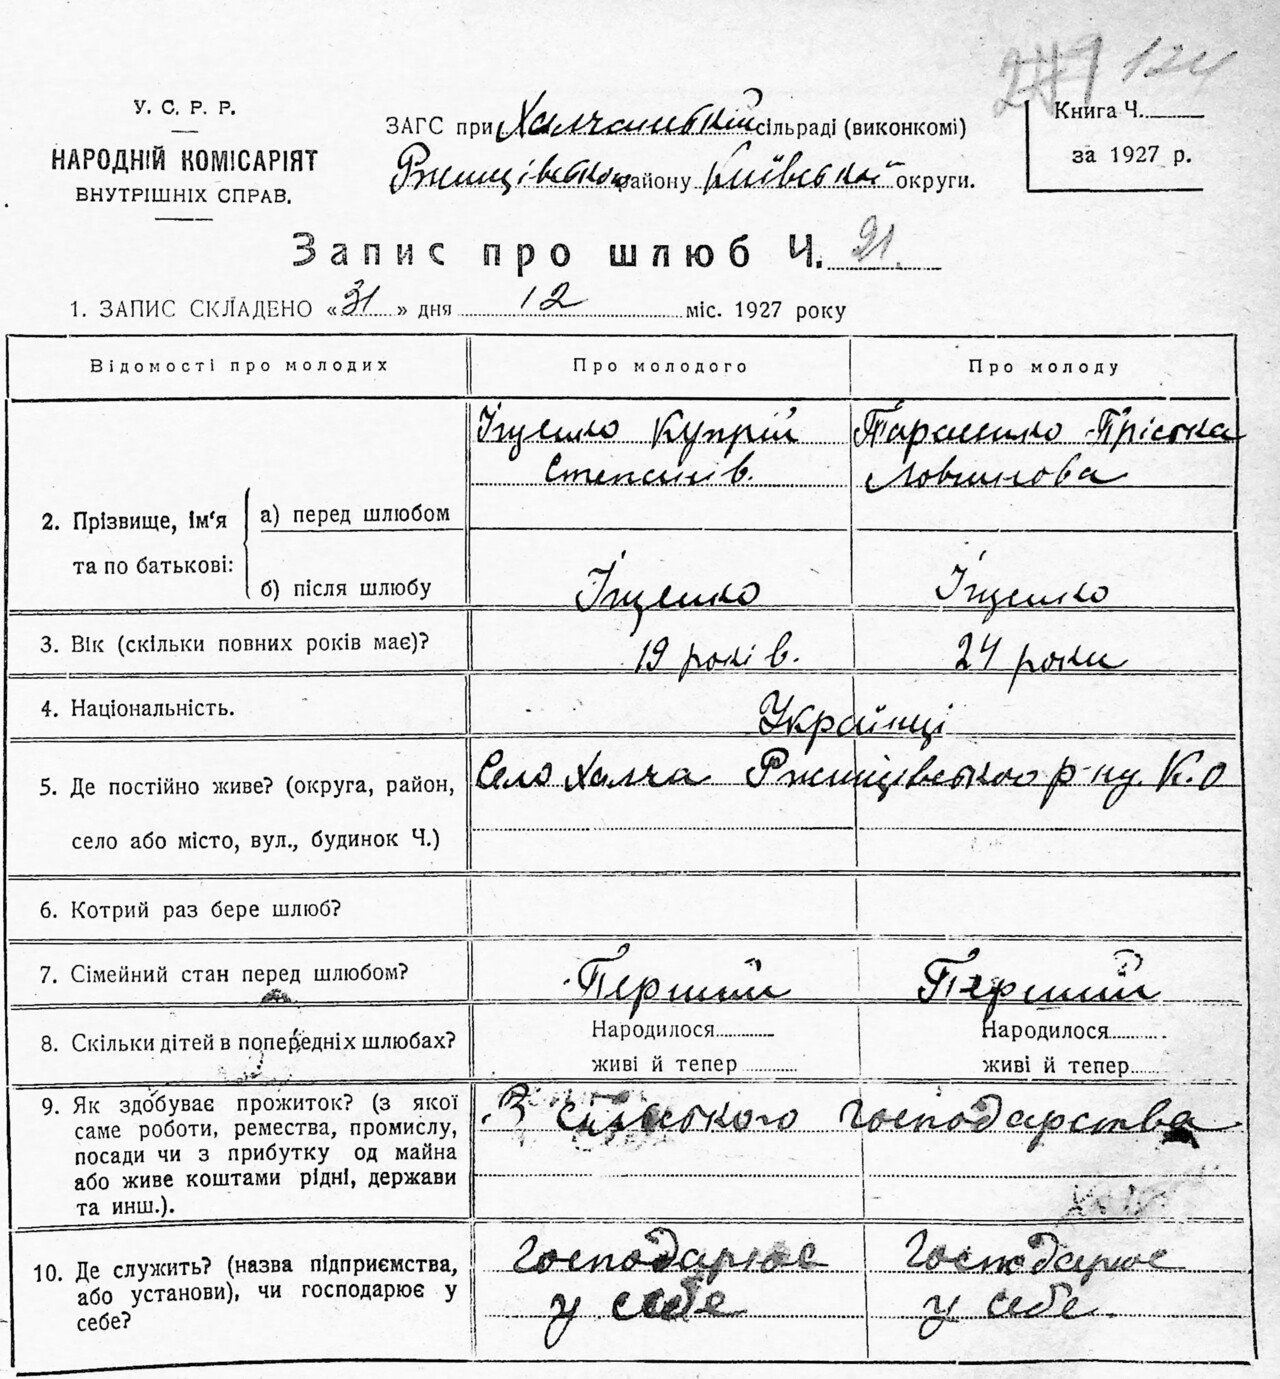 249 124
У. С. Р. Р.
НАРОДНІЙ КОМІСАРІЯТ
ВНУТРІШНІХ СПРАВ.
ЗАГС при Халчанській сільраді (виконкомі)
Ржищівського району Київської округи.
Книга Ч.
за 1927 р.
Запис про шлюб Ч. 21.
1. ЗАПИС СКЛАДЕНО «31» дня 12 міс. 1927 року
Відомості про молодих
Про молодого
Про молоду
2. Прізвище, ім'я та по батькові:
а) перед шлюбом
Іщенко Купрій
Степанів.
Тараненко Прісока
Логвинова
б) після шлюбу
Іщенко
Іщенко
3. Вік (скільки повних років має)?
19 років.
24 роки
4. Національність.
Українці
5. Де постійно живе? (округа, район,
село або місто, вул., будинок Ч.)
Село Халча Ржищівського р-ну. К.О
6. Котрий раз бере шлюб?
7. Сімейний стан перед шлюбом?
Перший
Перший
8. Скільки дітей в попередніх шлюбах?
Народилося
живі й тепер
Народилося
живі й тепер
9. Як здобуває прожиток? (з якої
саме роботи, ремества, промислу,
посади чи з прибутку од майна
або живе коштами рідні, держави
та инш.).
З сільського господарства
10. Де служить? (назва підприємства,
або установи), чи господарює у
себе?
Господарює
у себе
Господарює
у себе